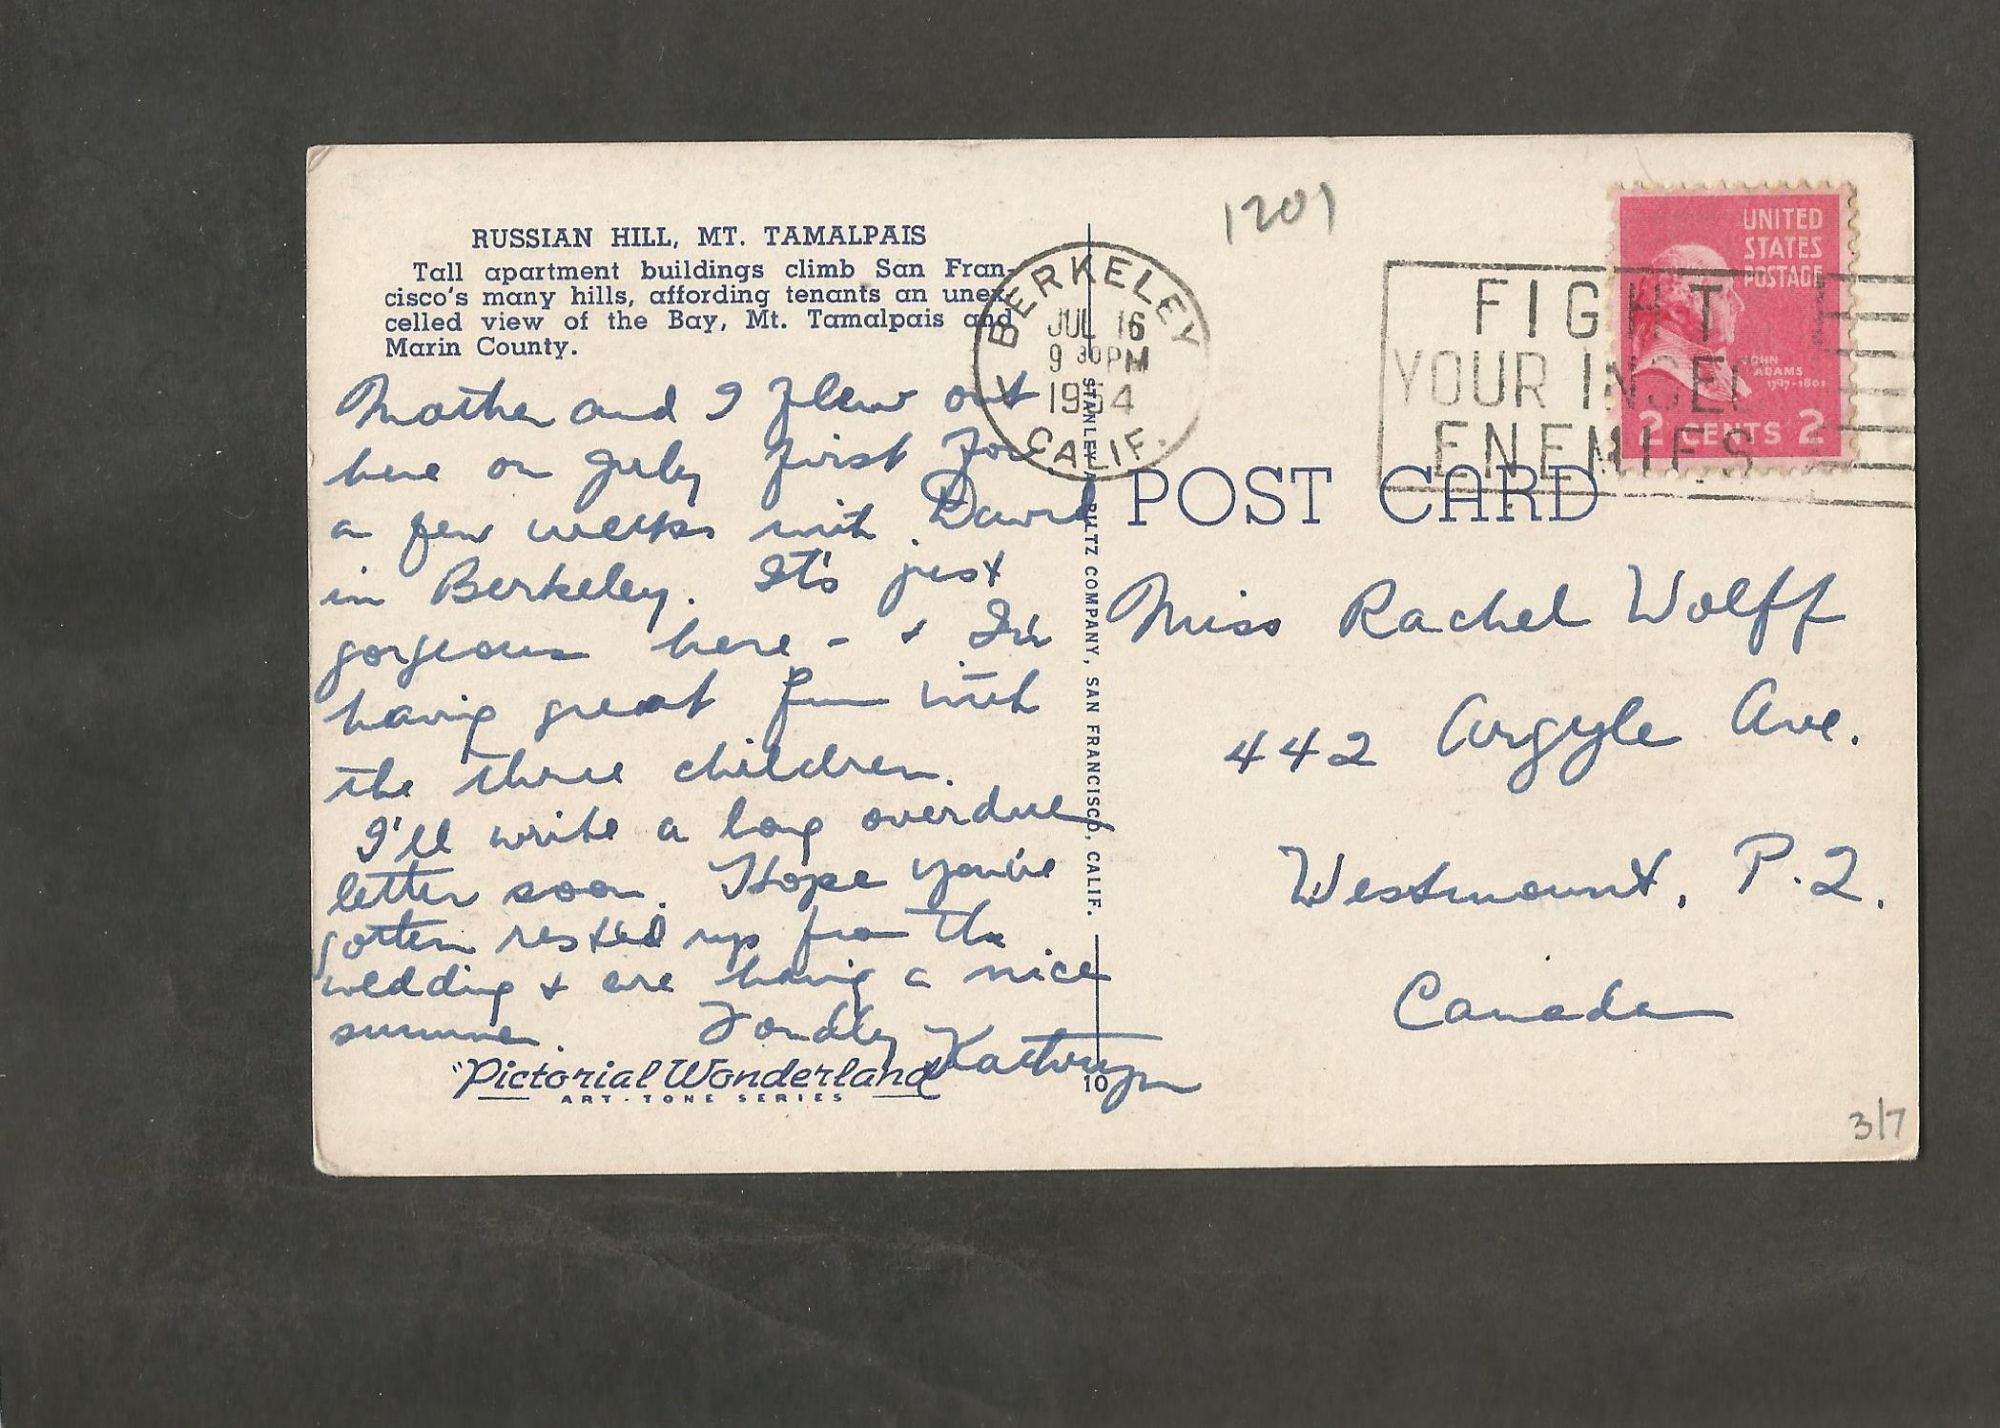 RUSSIAN HILL, MT. TAMALPAIS
Tall apartment buildings climb San Fran-
cisco's many hills, affording tenants an unex-
celled view of the Bay, Mt. Tamalpais and
Marin County.
Mother and I flew out
here on July first for
a few weeks with David
in Berkeley. It's just
gorgeous here - + I'm
having great fun with
the three children.
I'll write a long overdue
letter soon. Hope you've
gotten rested up from the
wedding + are having a nice
summer. Fondly Kathryn
"Pictorial Wonderland"
ART-TONE SERIES
10
STANLEY A. PILTZ COMPANY, SAN FRANCISCO, CALIF.
BERKELEY
JUL 16
9 30 PM
1954
CALIF.
1201
FIGHT
YOUR INSECT
ENEMIES
UNITED
STATES
POSTAGE
JOHN
ADAMS
1797-1801
2 CENTS 2
POST CARD
Miss Rachel Wolff
442 Argyle Ave.
Westmount, P.Q.
Canada
3/7